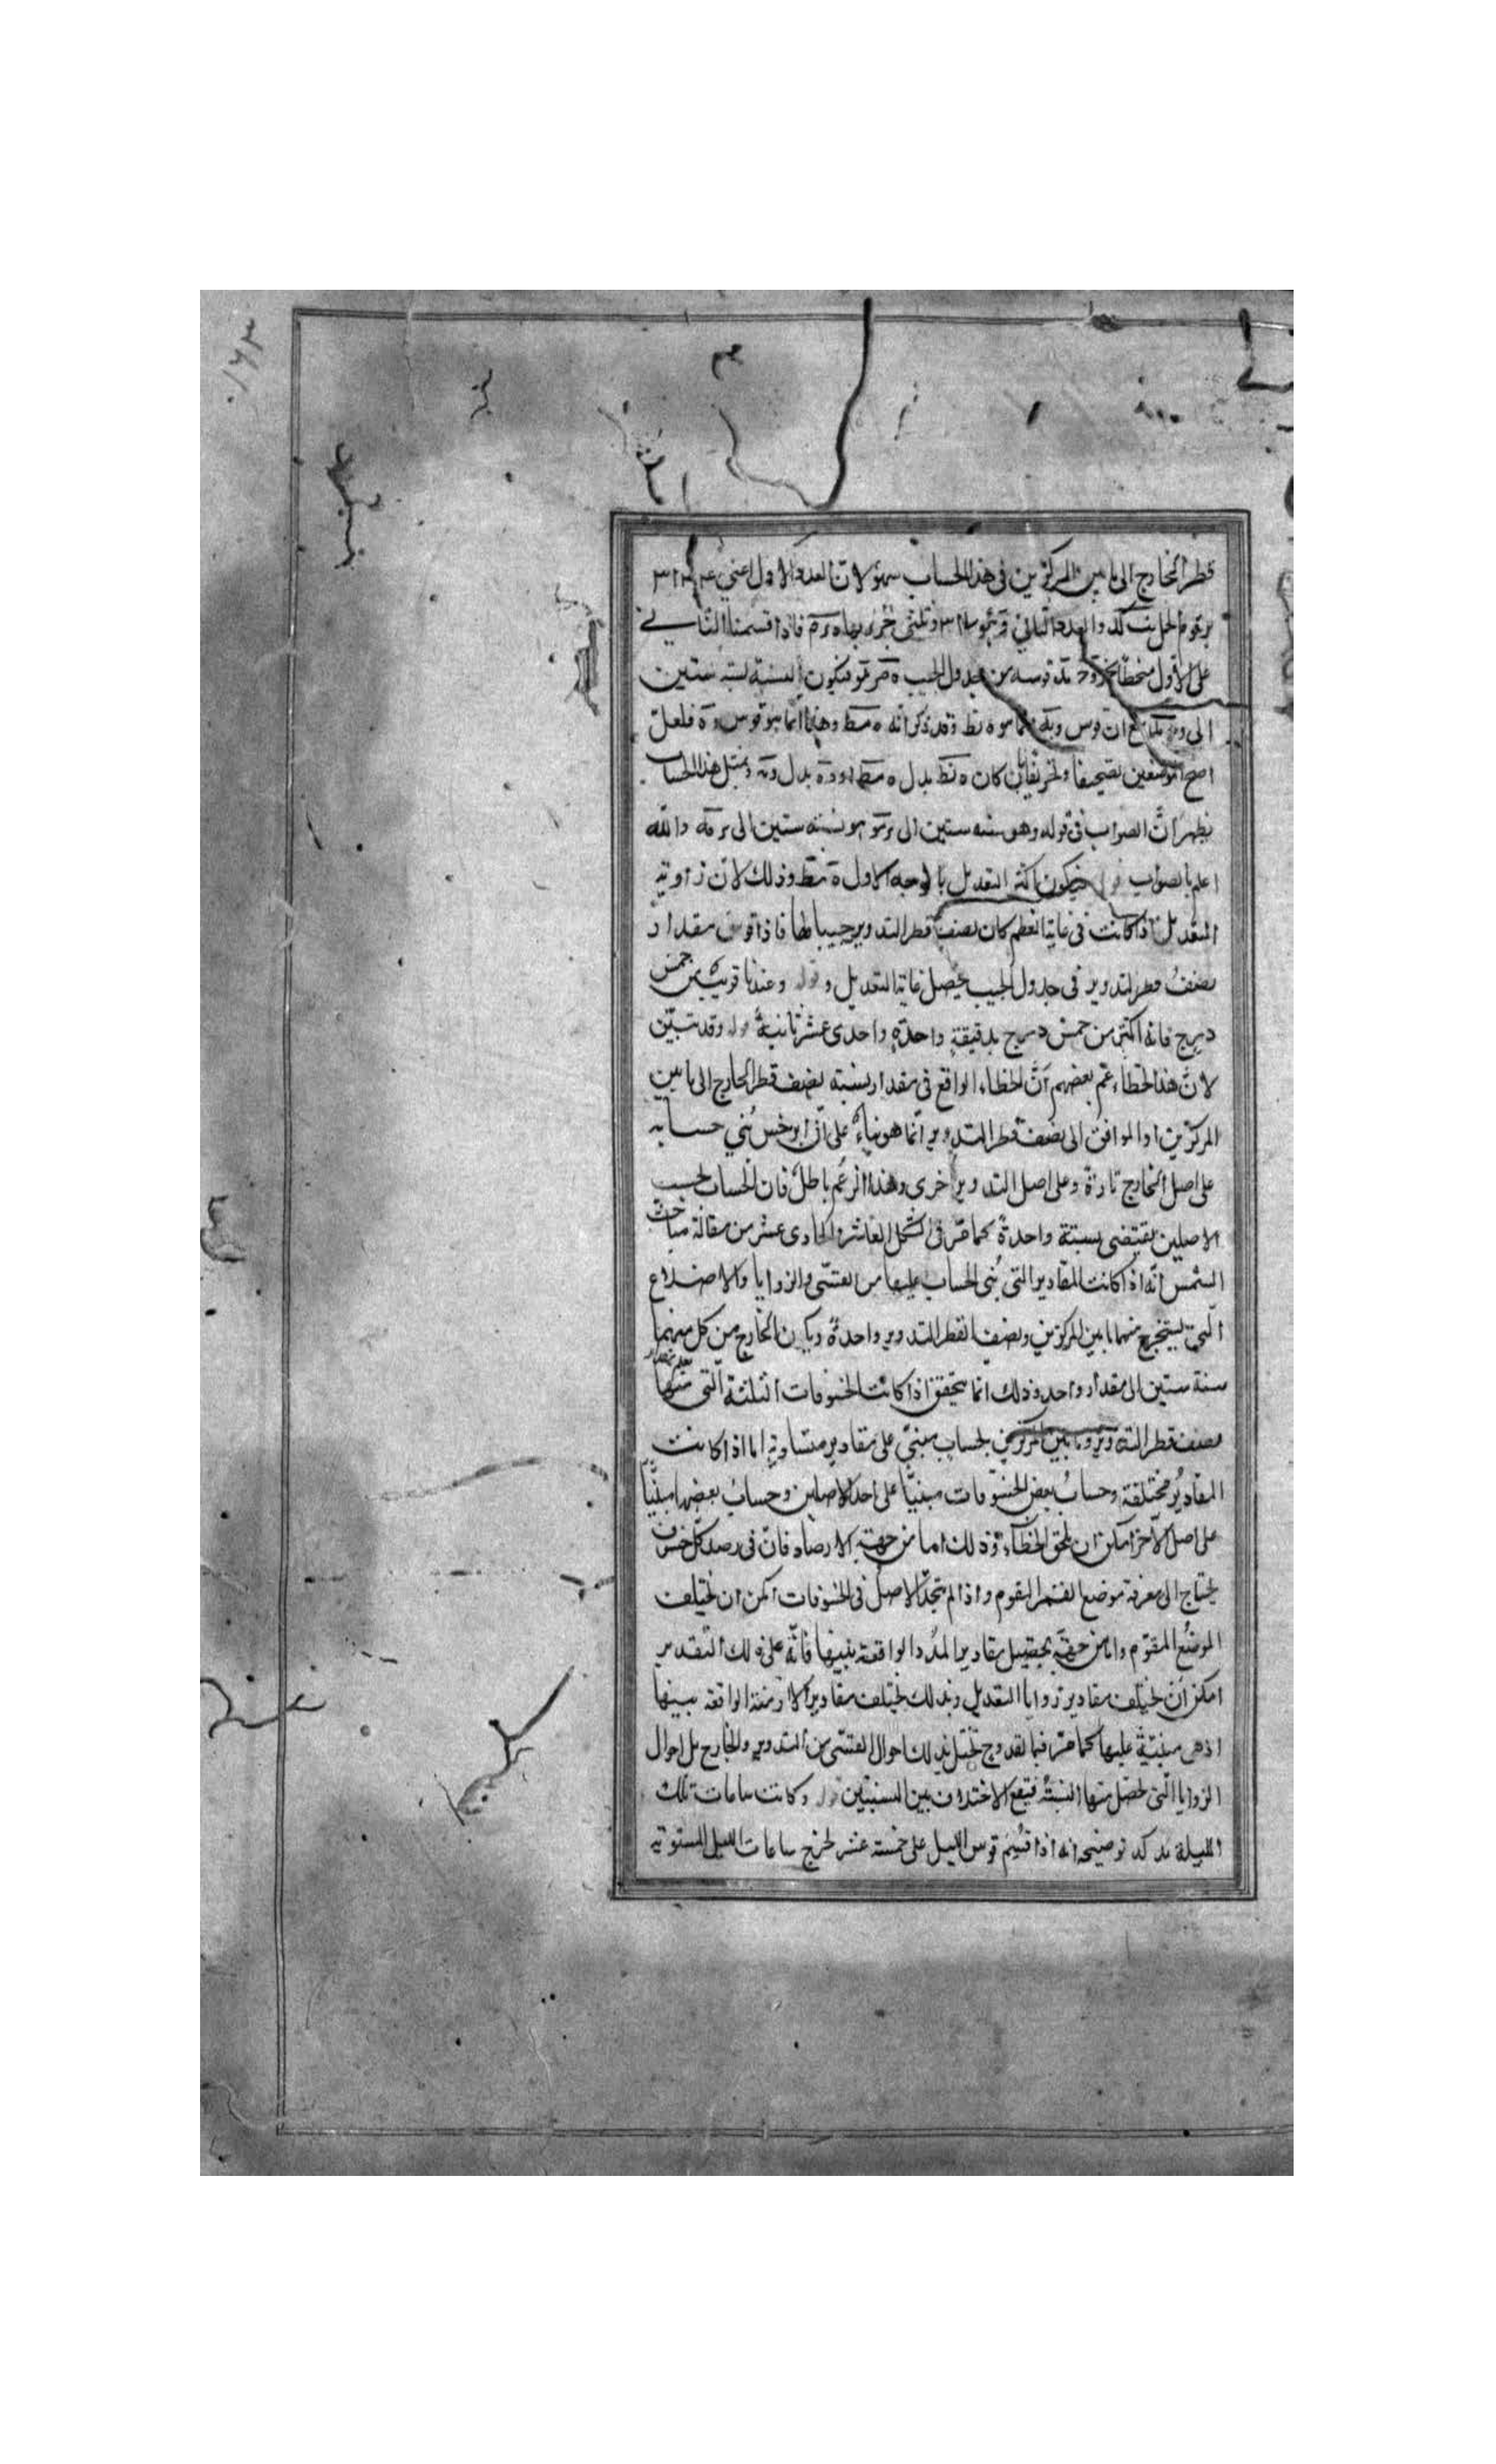 قطر الخارج الى ما بين المركزين فى هذا الحساب سهو لان العدد الاول اعنى
على الاول منحطا قوسه من جدول الجيب فيكون النسبة نسبة ستين
الى ان قوس انما هو ه نط وقد ذكر انه ه مط وهذا انما هو قوس فلعل
اصح الموضعين تصحيفا وتحريفا بان كان ه نط بدل ه مط بدل وبمثل هذا الحساب
يظهر ان الصواب فى قوله وهو نسبة ستين الى هو نسبة ستين الى والله
اعلم بالصواب فيكون اكثر التعديل بالوجه الاول ه مط وذلك لان زاوية
التعديل اذا كانت فى غاية العظم كان نصف قطر التدوير جيبا لها فاذا قوس مقدار
نصف قطر التدوير فى جدول الجيب يحصل غاية التعديل وقوله وعندنا قريب من خمس
درج فانه اكثر من خمس درج بدقيقة واحدة واحدى عشر ثانية قوله وقد تبين
لان هذا الخطاء زعم بعضهم ان الخطاء الواقع فى مقدار نسبة نصف قطر الخارج الى ما بين
المركزين او الموافق الى نصف قطر التدوير انما هو بناء على ان ابرخس بنى حسابه
على اصل الخارج تارة وعلى اصل التدوير اخرى وهذا الزعم باطل فان الحساب بحسب
الاصلين يقتضى نسبة واحدة كما مر فى الشكل العاشر والحادى عشر من مقالة مباحث
الشمس انه اذا كانت المقادير التى بنى الحساب عليها من القسى والزوايا والاضلاع
التى يستخرج منها ما بين المركزين ونصف القطر التدوير واحدة ويكون الخارج من كل منهما
نسبة ستين الى مقدار واحد وذلك انما يتحقق اذا كانت الخسوفات الثلثة التى منها يعلم مقدار
نصف قطر التدوير وما بين المركزين بحساب مبنى على مقادير متساوية اما اذا كانت
المقادير مختلفة وحساب بعض الخسوفات مبنيا على احد الاصلين وحساب بعضها مبنيا
على اصل الآخر امكن ان يلحق الخطآء وذلك اما من جهة الارصاد فان فى رصد كل خسف
يحتاج الى معرفة موضع القمر المقوم واذا لم يتحد الاصل فى الخسوفات امكن ان يختلف
الموضع المقوم واما من جهة تحصيل مقادير المدد الواقعة بينها فانه على ذلك التقدير
امكن ان يختلف مقادير زوايا التعديل وبذلك يختلف مقادير الازمنة الواقعة بينها
اذ هى مبنية عليها كما مر فيما تقدم وح يختل بذلك احوال القسى من التدوير والخارج بل احوال
الزوايا التى تحصل منها النسبة فيقع الاختلاف بين النسبتين قوله وكانت ساعات تلك
الليلة يد كد توضيحه انه اذا قسم قوس الليل على خمسة عشر يخرج ساعات الليل المستوية